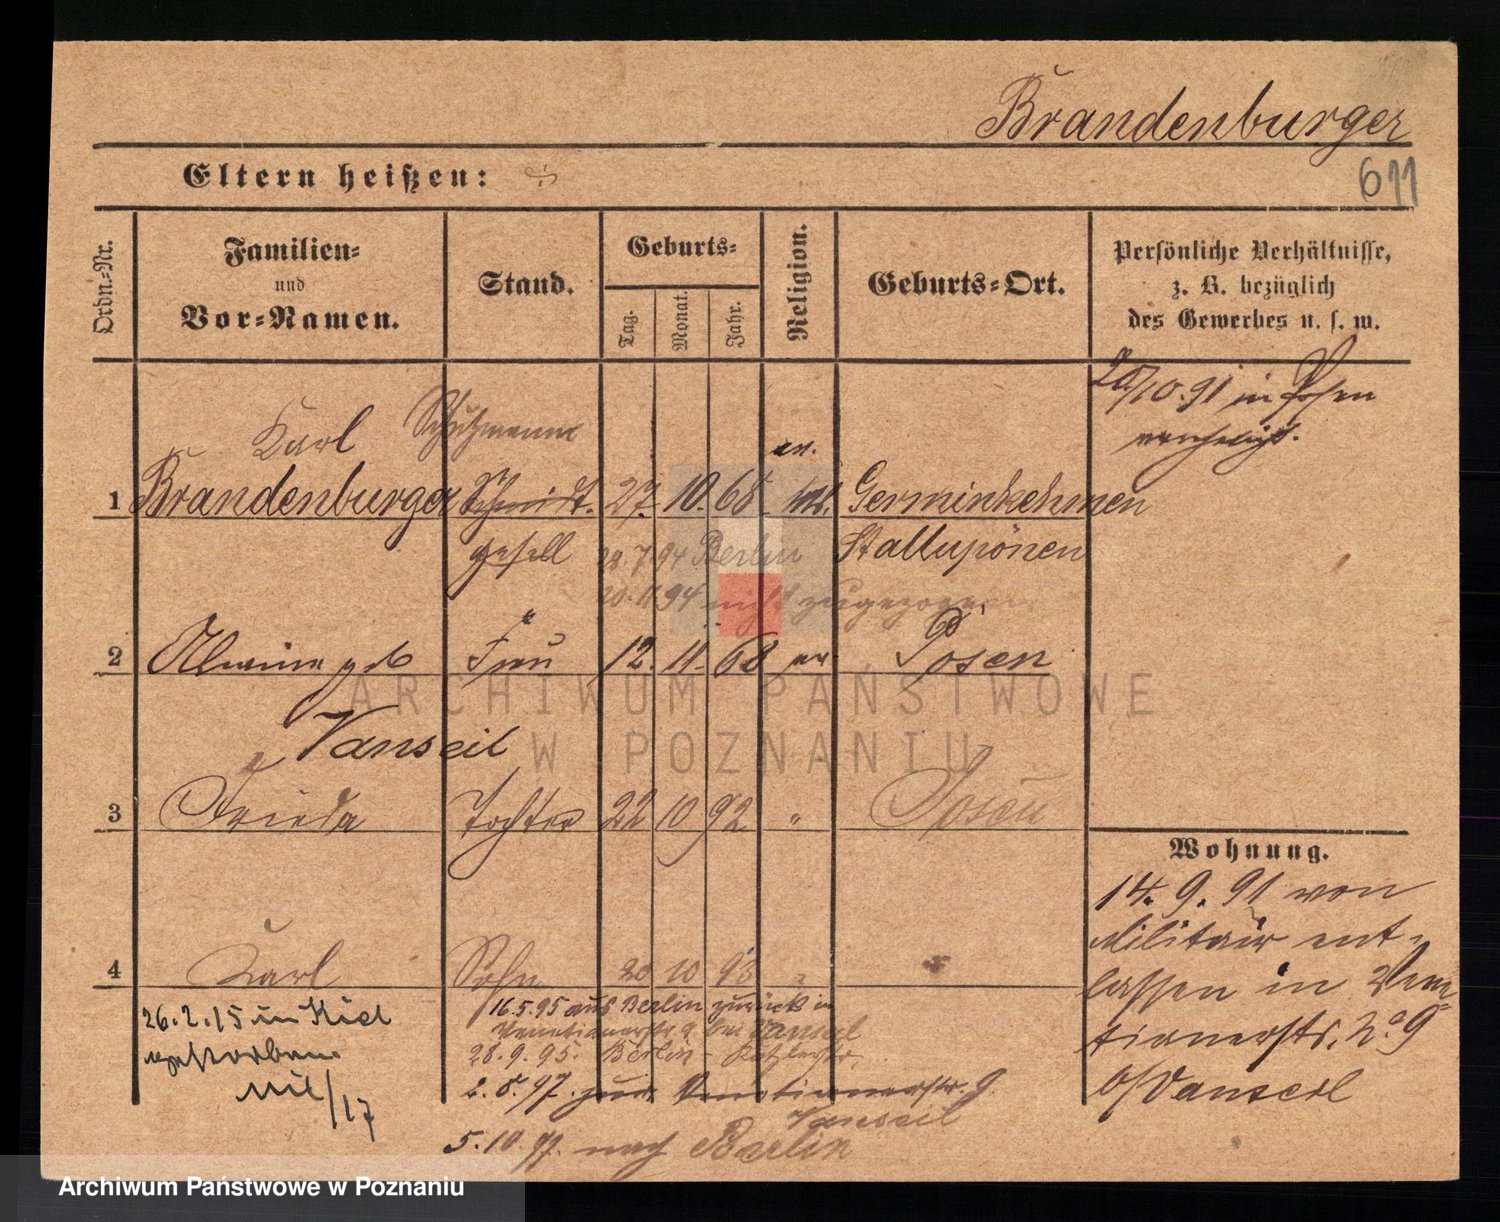 Brandenburger
611
Eltern heißen:
Ordn.-Nr.
Familien-
und
Vor-Namen.
Stand.
Geburts-
Tag.
Monat.
Jahr.
Religion.
Geburts-Ort.
Persönliche Verhältnisse,
z. B. bezüglich
des Gewerbes u. s. w.
20/10.91 in Posen
verehelicht.
Karl Schutzmann
ev.
1 Brandenburger Schmidt. 27. 10. 68 Germinkehmen
gesell Stallupönen
28.7.94 Berlin
20.11.94 nicht zugezogen
2 Alwine geb Frau 12. 11. 68 ev. Posen
Vanseil
3 Frieda Tochter 22 10 92 " Posen
4 Karl Sohn 20 10 93 "
26.2.15 in Kiel
gestorben
Mil/17
16.5.95 aus Berlin zurück in
Venetianerstr 9 bei Vanseil
28.9.95. Berlin
2.8.97. zur Venetianerstr. 9
Vanseil
5.10.97. nach Berlin
Wohnung.
14. 9. 91 von
Militair ent-
lassen in Vene
tianerstr. No 9
b/Vanseil
ARCHIWUM PAŃSTWOWE
W POZNANIU
Archiwum Państwowe w Poznaniu